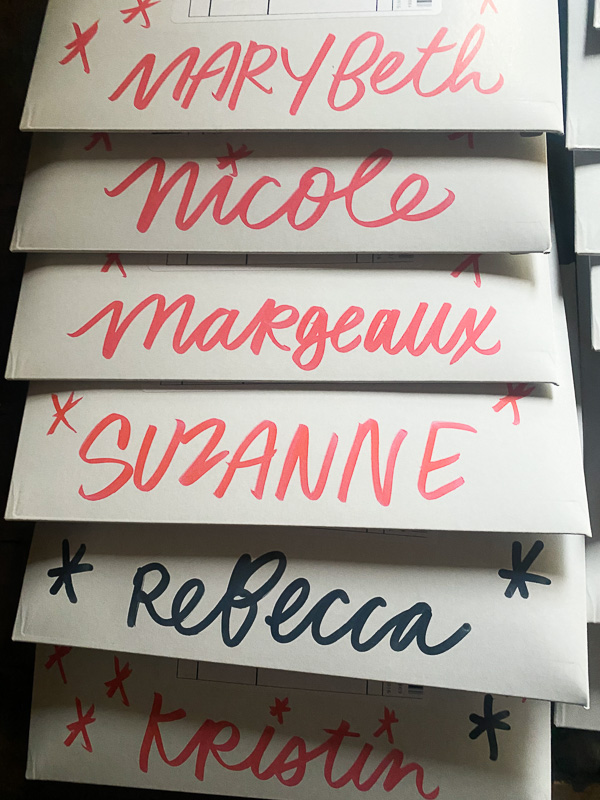 MARYBeth
Nicole
MaRgeaux
SUZANNE
ReBecca
KRistin